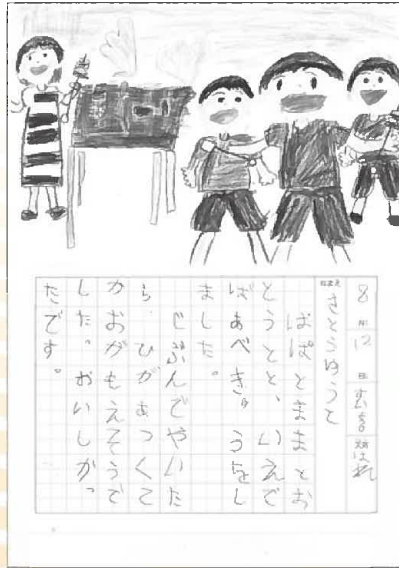 8月12日 天気はれ
なまえ さとうゆうと
ぱぱとままとお
とうとと、いえで
ばあべきゅうをし
ました。
じぶんでやいた
ら、ひがあつくて
かおがもえそうで
した。おいしかっ
たです。